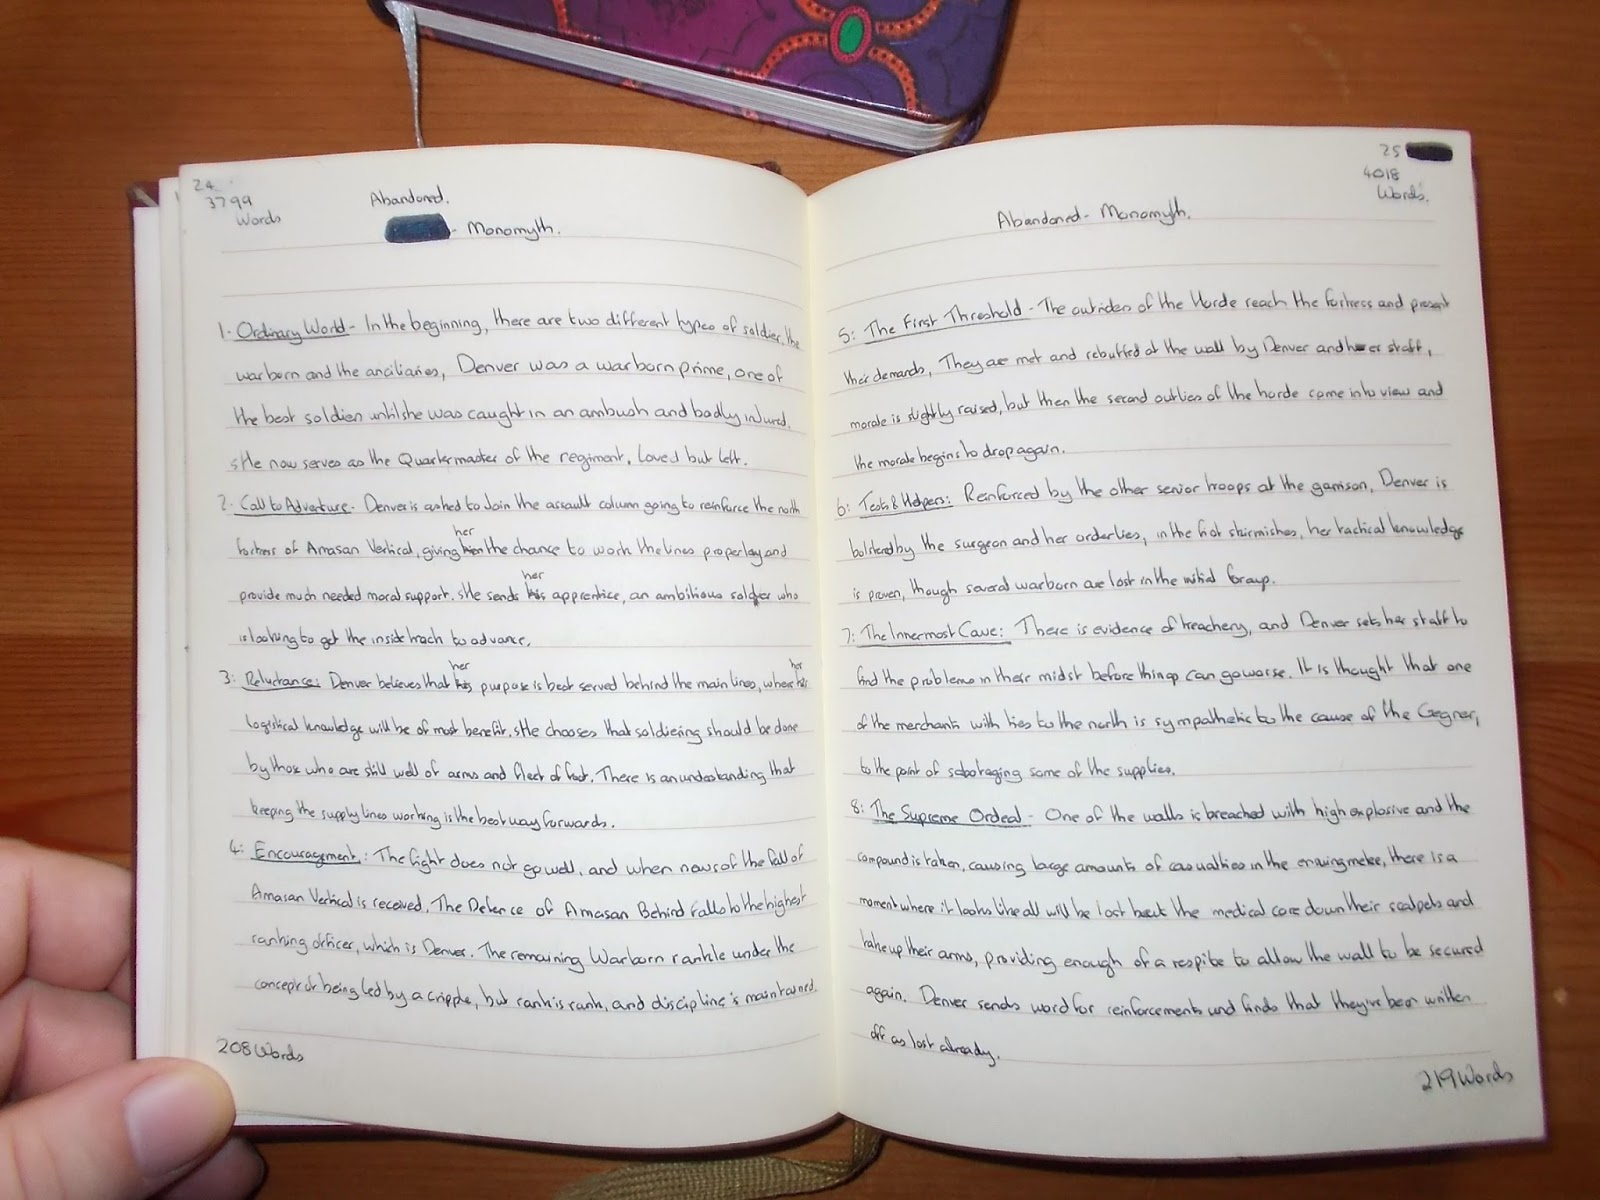 24
3799
Words
Abandoned.
- Monomyth.
1- Ordinary World - In the beginning, there are two different types of soldier, the
warborn and the anciliaries, Denver was a warborn prime, one of
the best soldiers until she was caught in an ambush and badly injured.
sHe now serves as the Quartermaster of the regiment. Loved but left.
2- Call to Adventure - Denver is asked to join the assault column going to reinforce the north
fortress of Amasan Vertical, giving her the chance to work the lines properley and
provide much needed moral support. sHe sends her apprentice, an ambitious soldier who
is looking to get the inside track to advance.
3: Reluctance: Denver believes that her purpose is best served behind the main lines, where her
logistical knowledge will be of most benefit. sHe chooses that soldiering should be done
by those who are still well of arms and fleet of foot. There is an understanding that
keeping the supply lines working is the best way forwards.
4: Encouragement: The fight does not go well, and when news of the fall of
Amasan Vertical is received, The Defence of Amasan Behind falls to the highest
ranking officer, which is Denver. The remaining Warborn rankle under the
concept of being led by a cripple, but rank is rank, and discipline is maintained.
208 Words
25
4018
Words.
Abandoned - Monomyth.
5: The First Threshold - The outriders of the Horde reach the fortress and present
their demands, They are met and rebuffed at the wall by Denver and her staff,
morale is slightly raised, but then the second outlies of the horde come into view and
the morale begins to drop again.
6: Tests & Helpers: Reinforced by the other senior troops at the garrison, Denver is
bolstered by the surgeon and her orderlies, in the first skirmishes, her tactical knowledge
is proven, though several warborn are lost in the initial foray.
7: The Innermost Cave: There is evidence of treachery, and Denver sets her staff to
find the problems in their midst before things can go worse. It is thought that one
of the merchants with ties to the north is sympathetic to the cause of the Gegner,
to the point of sabotaging some of the supplies.
8: The Supreme Ordeal - One of the walls is breached with high explosive and the
compound is taken, causing large amounts of casualties in the ensuing melee, there is a
moment where it looks like all will be lost but the medical core down their scalpels and
take up their arms, providing enough of a respite to allow the wall to be secured
again. Denver sends word for reinforcements and finds that they've been written
off as lost already.
219 Words